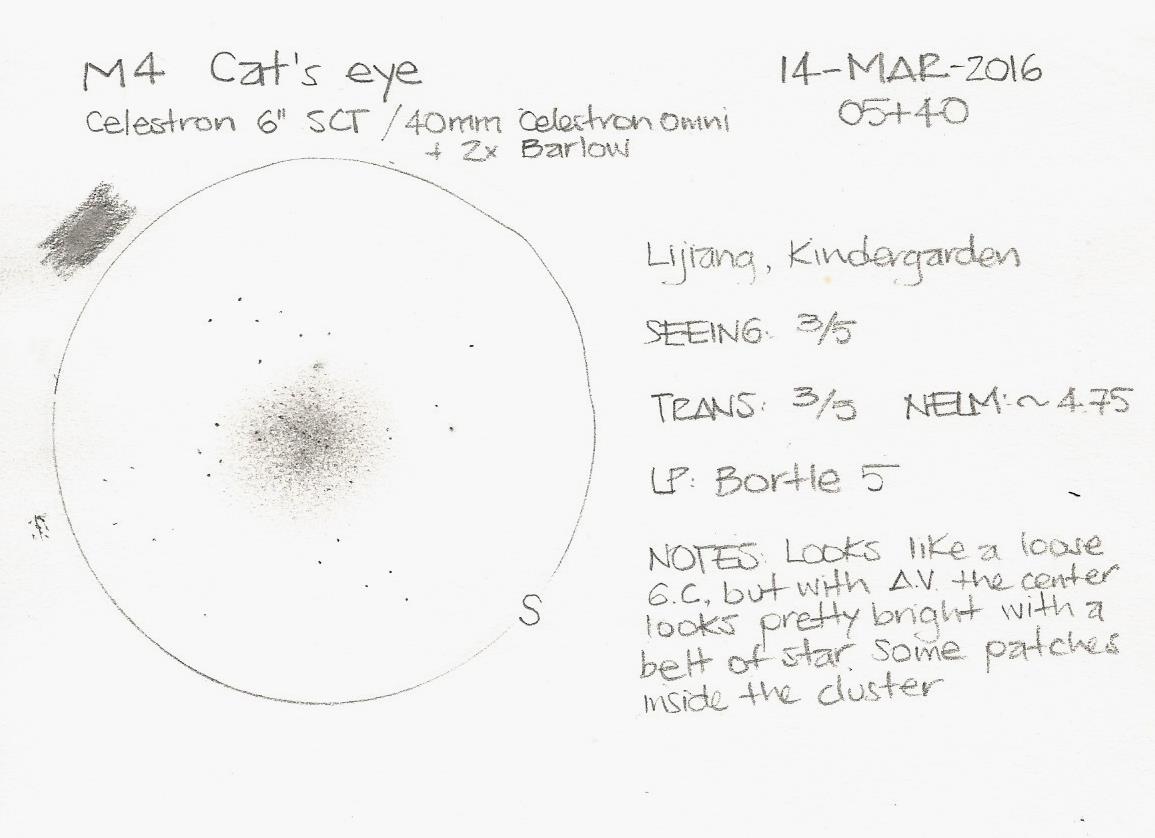 M4 Cat's eye
14-MAR-2016
Celestron 6" SCT / 40mm Celestron omni
05+40
+ 2x Barlow
Lijiang, Kindergarden
SEEING: 3/5
TRANS: 3/5 NELM: ~ 4.75
LP: Bortle 5
S
NOTES: Looks like a loose
G.C, but with A.V. the center
looks pretty bright with a
belt of star. Some patches
inside the cluster